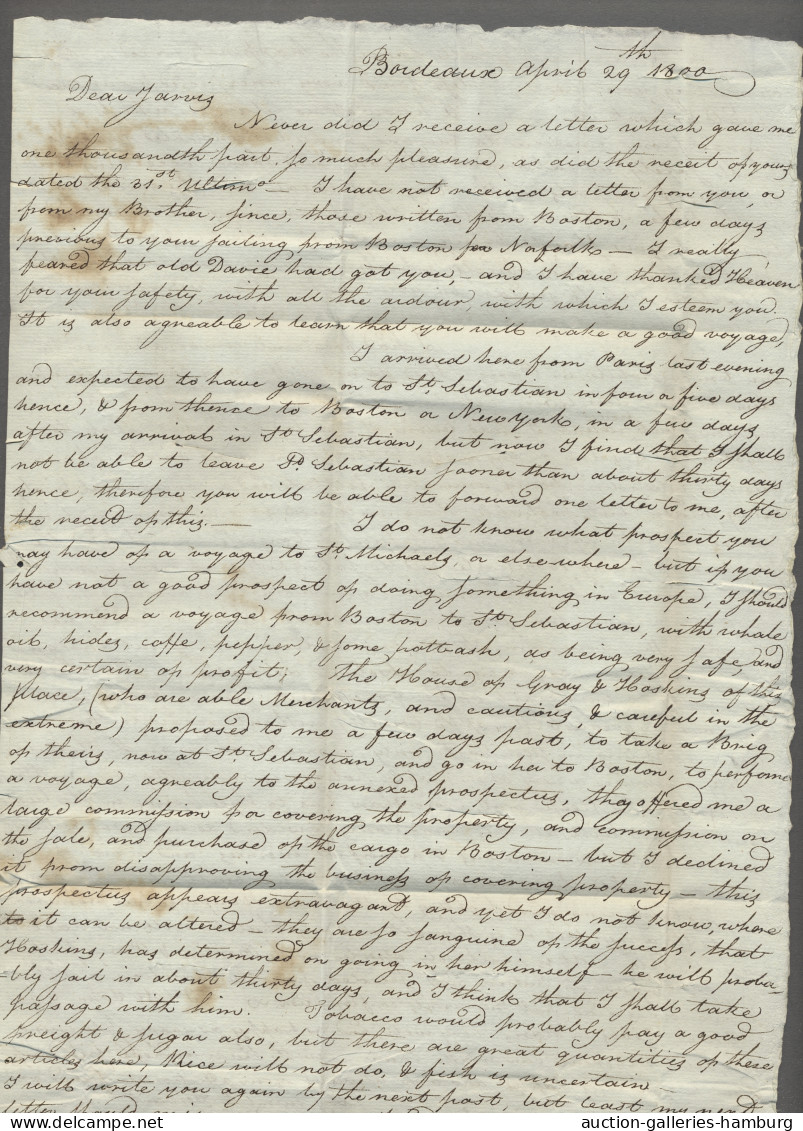 Bordeaux April 29th 1800
Dear Jarvis
Never did I receive a letter which gave me
one thousandth part, so much pleasure, as did the receit of yours
dated the 31st. Ultimo — I have not received a letter from you, or
from my Brother, since, those written from Boston, a few days
previous to your sailing from Boston for Norfolk — I really
feared that old Davie had got you, — and I have thanked Heaven
for your safety, with all the ardour, with which I esteem you.
It is also agreable to learn that you will make a good voyage,
I arrived here from Paris last evening
and expected to have gone on to St. Sebastian in four or five days
hence, & from thence to Boston or New York, in a few days
after my arrival in St. Sebastian, but now I find that I shall
not be able to leave St. Sebastian sooner than about thirty days
hence, therefore you will be able to forward one letter to me, after
the receit of this. — I do not know what prospect you
may have of a voyage to St. Michaels, or else where — but if you
have not a good prospect of doing something in Europe, I should
recommend a voyage from Boston to St. Sebastian, with whale
oil, hides, coffe, pepper, & some pottash, as being very safe, and
very certain of profit; The House of Gray & Hoskins of this
place, (who are able Merchants, and cautious, & careful in the
extreme) proposed to me a few days past, to take a Brig
of theirs, now at St. Sebastian, and go in her to Boston, to perform
a voyage, agreably to the annexed prospectus, they offered me a
large commission for covering the property, and commission on
the sale, and purchase of the cargo in Boston — but I declined
it from disapproving the business of covering property — this
prospectus appears extravagant, and yet I do not know, where
it can be altered — they are so sanguine of the success, that
Hoskins, has determined on going in her himself — he will proba-
-bly sail in about thirty days, and I think that I shall take
passage with him. Tobacco would probably pay a good
freight & sugar also, but there are great quantities of these
articles here, Rice will not do, & fish is uncertain —
I will write you again by the next post, but least my next
letter should
auction-galleries-hamburg